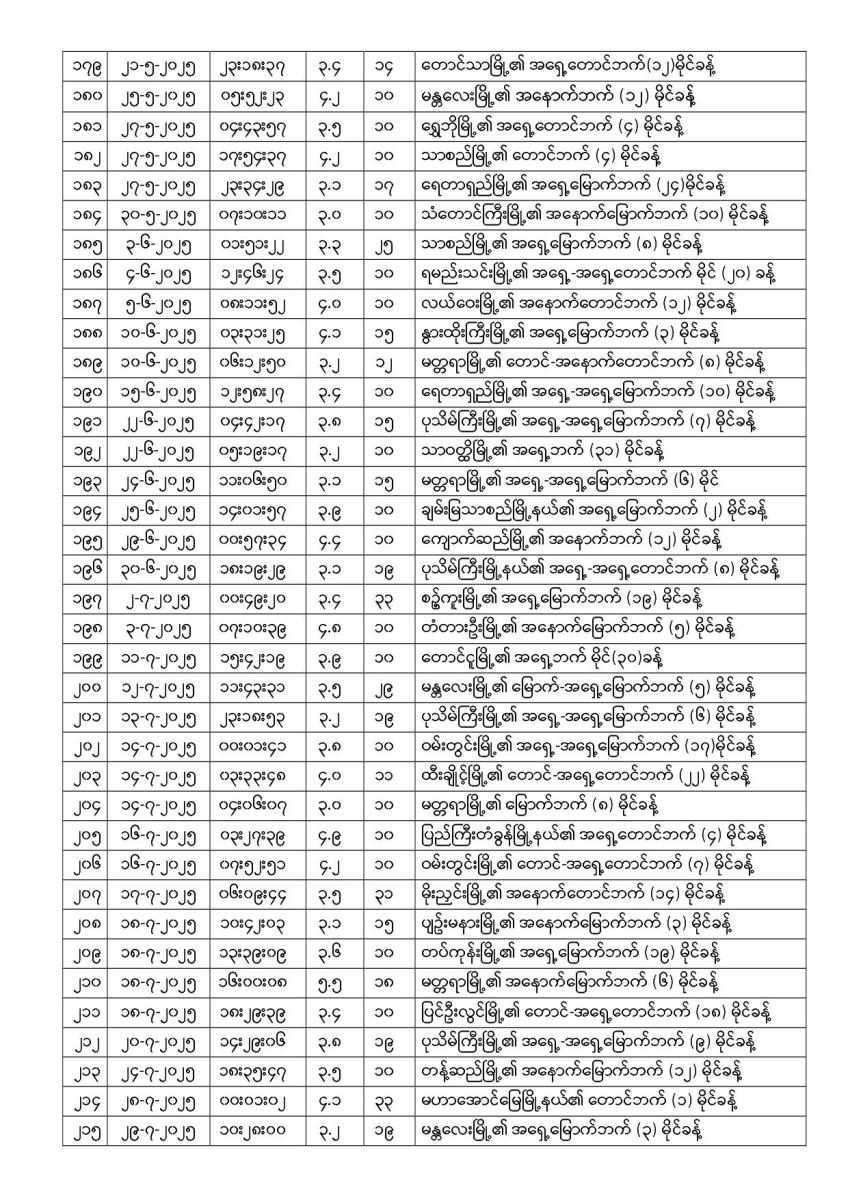 ၁၇၉ ၂၁-၅-၂၀၂၅ ၂၃း၁၈း၃၇ ၃.၄ ၁၄ တောင်သာမြို့၏ အရှေ့တောင်ဘက်(၁၂)မိုင်ခန့်
၁၈၀ ၂၅-၅-၂၀၂၅ ၀၅း၅၂း၂၃ ၄.၂ ၁၀ မန္တလေးမြို့၏ အနောက်ဘက် (၁၂) မိုင်ခန့်
၁၈၁ ၂၇-၅-၂၀၂၅ ၀၄း၄၃း၅၇ ၃.၅ ၁၀ ရွှေဘိုမြို့၏ အရှေ့တောင်ဘက် (၄) မိုင်ခန့်
၁၈၂ ၂၇-၅-၂၀၂၅ ၁၇း၅၄း၃၇ ၄.၂ ၁၀ သာစည်မြို့၏ တောင်ဘက် (၄) မိုင်ခန့်
၁၈၃ ၂၇-၅-၂၀၂၅ ၂၃း၃၄း၂၉ ၃.၁ ၁၇ ရေတာရှည်မြို့၏ အရှေ့မြောက်ဘက် (၂၄)မိုင်ခန့်
၁၈၄ ၃၀-၅-၂၀၂၅ ၀၇း၁၀း၁၁ ၃.၀ ၁၀ သံတောင်ကြီးမြို့၏ အနောက်မြောက်ဘက် (၁၀) မိုင်ခန့်
၁၈၅ ၃-၆-၂၀၂၅ ၀၁း၅၁း၂၂ ၃.၃ ၂၅ သာစည်မြို့၏ အရှေ့မြောက်ဘက် (၈) မိုင်ခန့်
၁၈၆ ၄-၆-၂၀၂၅ ၁၂း၄၆း၂၄ ၃.၅ ၁၀ ရမည်းသင်းမြို့၏ အရှေ့-အရှေ့တောင်ဘက် မိုင် (၂၀) ခန့်
၁၈၇ ၅-၆-၂၀၂၅ ၀၈း၁၁း၅၂ ၄.၀ ၁၀ လယ်ဝေးမြို့၏ အနောက်တောင်ဘက် (၁၂) မိုင်ခန့်
၁၈၈ ၁၀-၆-၂၀၂၅ ၀၃း၃၁း၂၅ ၄.၁ ၁၅ နွားထိုးကြီးမြို့၏ အရှေ့မြောက်ဘက် (၃) မိုင်ခန့်
၁၈၉ ၁၀-၆-၂၀၂၅ ၀၆း၁၂း၅၀ ၃.၂ ၁၂ မတ္တရာမြို့၏ တောင်-အနောက်တောင်ဘက် (၈) မိုင်ခန့်
၁၉၀ ၁၅-၆-၂၀၂၅ ၁၂း၅၈း၂၇ ၃.၄ ၁၀ ရေတာရှည်မြို့၏ အရှေ့-အရှေ့မြောက်ဘက် (၁၀) မိုင်ခန့်
၁၉၁ ၂၂-၆-၂၀၂၅ ၀၄း၄၂း၁၇ ၃.၈ ၁၅ ပုသိမ်ကြီးမြို့၏ အရှေ့-အရှေ့မြောက်ဘက် (၇) မိုင်ခန့်
၁၉၂ ၂၂-၆-၂၀၂၅ ၀၅း၁၉း၁၇ ၃.၂ ၁၀ သာဝတ္ထိမြို့၏ အရှေ့ဘက် (၃၁) မိုင်ခန့်
၁၉၃ ၂၄-၆-၂၀၂၅ ၁၁း၀၆း၅၀ ၃.၁ ၁၅ မတ္တရာမြို့၏ အရှေ့-အရှေ့မြောက်ဘက် (၆) မိုင်
၁၉၄ ၂၅-၆-၂၀၂၅ ၁၄း၀၁း၅၇ ၃.၉ ၁၀ ချမ်းမြသာစည်မြို့နယ်၏ အရှေ့မြောက်ဘက် (၂) မိုင်ခန့်
၁၉၅ ၂၉-၆-၂၀၂၅ ၀၀း၅၇း၃၄ ၄.၄ ၁၀ ကျောက်ဆည်မြို့၏ အနောက်ဘက် (၁၂) မိုင်ခန့်
၁၉၆ ၃၀-၆-၂၀၂၅ ၁၈း၁၉း၂၉ ၃.၁ ၁၉ ပုသိမ်ကြီးမြို့နယ်၏ အရှေ့-အရှေ့တောင်ဘက် (၈) မိုင်ခန့်
၁၉၇ ၂-၇-၂၀၂၅ ၀၀း၄၉း၂၀ ၃.၄ ၃၃ စဉ့်ကူးမြို့၏ အရှေ့မြောက်ဘက် (၁၉) မိုင်ခန့်
၁၉၈ ၃-၇-၂၀၂၅ ၀၇း၁၀း၃၉ ၄.၈ ၁၀ တံတားဦးမြို့၏ အနောက်မြောက်ဘက် (၅) မိုင်ခန့်
၁၉၉ ၁၁-၇-၂၀၂၅ ၁၅း၄၂း၁၉ ၃.၉ ၁၀ တောင်ငူမြို့၏ အရှေ့ဘက် မိုင်(၃၀)ခန့်
၂၀၀ ၁၂-၇-၂၀၂၅ ၁၁း၄၃း၃၁ ၃.၅ ၂၉ မန္တလေးမြို့၏ မြောက်-အရှေ့မြောက်ဘက် (၅) မိုင်ခန့်
၂၀၁ ၁၃-၇-၂၀၂၅ ၂၃း၁၈း၅၃ ၃.၂ ၁၉ ပုသိမ်ကြီးမြို့၏ အရှေ့-အရှေ့မြောက်ဘက် (၆) မိုင်ခန့်
၂၀၂ ၁၄-၇-၂၀၂၅ ၀၀း၀၁း၄၁ ၃.၈ ၁၀ ဝမ်းတွင်းမြို့၏ အရှေ့-အရှေ့မြောက်ဘက် (၁၇)မိုင်ခန့်
၂၀၃ ၁၄-၇-၂၀၂၅ ၀၃း၃၃း၄၈ ၄.၀ ၁၁ ထီးချိုင့်မြို့၏ တောင်-အရှေ့တောင်ဘက် (၂၂) မိုင်ခန့်
၂၀၄ ၁၄-၇-၂၀၂၅ ၀၄း၀၆း၀၇ ၃.၀ ၁၀ မတ္တရာမြို့၏ မြောက်ဘက် (၈) မိုင်ခန့်
၂၀၅ ၁၆-၇-၂၀၂၅ ၀၃း၂၇း၃၉ ၄.၉ ၁၀ ပြည်ကြီးတံခွန်မြို့နယ်၏ အရှေ့တောင်ဘက် (၄) မိုင်ခန့်
၂၀၆ ၁၆-၇-၂၀၂၅ ၀၇း၅၂း၅၁ ၄.၂ ၁၀ ဝမ်းတွင်းမြို့၏ တောင်-အရှေ့တောင်ဘက် (၇) မိုင်ခန့်
၂၀၇ ၁၇-၇-၂၀၂၅ ၀၆း၀၉း၄၄ ၃.၅ ၃၁ မိုးညှင်းမြို့၏ အနောက်တောင်ဘက် (၁၄) မိုင်ခန့်
၂၀၈ ၁၈-၇-၂၀၂၅ ၁၀း၄၂း၀၃ ၃.၁ ၁၅ ပျဉ်းမနားမြို့၏ အနောက်မြောက်ဘက် (၃) မိုင်ခန့်
၂၀၉ ၁၈-၇-၂၀၂၅ ၁၃း၃၉း၀၉ ၃.၆ ၁၀ တပ်ကုန်းမြို့၏ အရှေ့မြောက်ဘက် (၁၉) မိုင်ခန့်
၂၁၀ ၁၈-၇-၂၀၂၅ ၁၆း၀၀း၀၈ ၅.၅ ၁၈ မတ္တရာမြို့၏ အနောက်မြောက်ဘက် (၆) မိုင်ခန့်
၂၁၁ ၁၈-၇-၂၀၂၅ ၁၈း၂၉း၃၉ ၃.၄ ၁၀ ပြင်ဦးလွင်မြို့၏ တောင်-အရှေ့တောင်ဘက် (၁၈) မိုင်ခန့်
၂၁၂ ၂၀-၇-၂၀၂၅ ၁၄း၂၉း၀၆ ၃.၈ ၁၉ ပုသိမ်ကြီးမြို့၏ အရှေ့-အရှေ့မြောက်ဘက် (၉) မိုင်ခန့်
၂၁၃ ၂၄-၇-၂၀၂၅ ၁၈း၃၅း၄၇ ၃.၅ ၁၀ တန့်ဆည်မြို့၏ အနောက်မြောက်ဘက် (၁၂) မိုင်ခန့်
၂၁၄ ၂၈-၇-၂၀၂၅ ၀၀း၀၁း၀၂ ၄.၁ ၃၃ မဟာအောင်မြေမြို့နယ်၏ တောင်ဘက် (၁) မိုင်ခန့်
၂၁၅ ၂၉-၇-၂၀၂၅ ၁၀း၂၈း၀၀ ၃.၂ ၁၉ မန္တလေးမြို့၏ အရှေ့မြောက်ဘက် (၃) မိုင်ခန့်